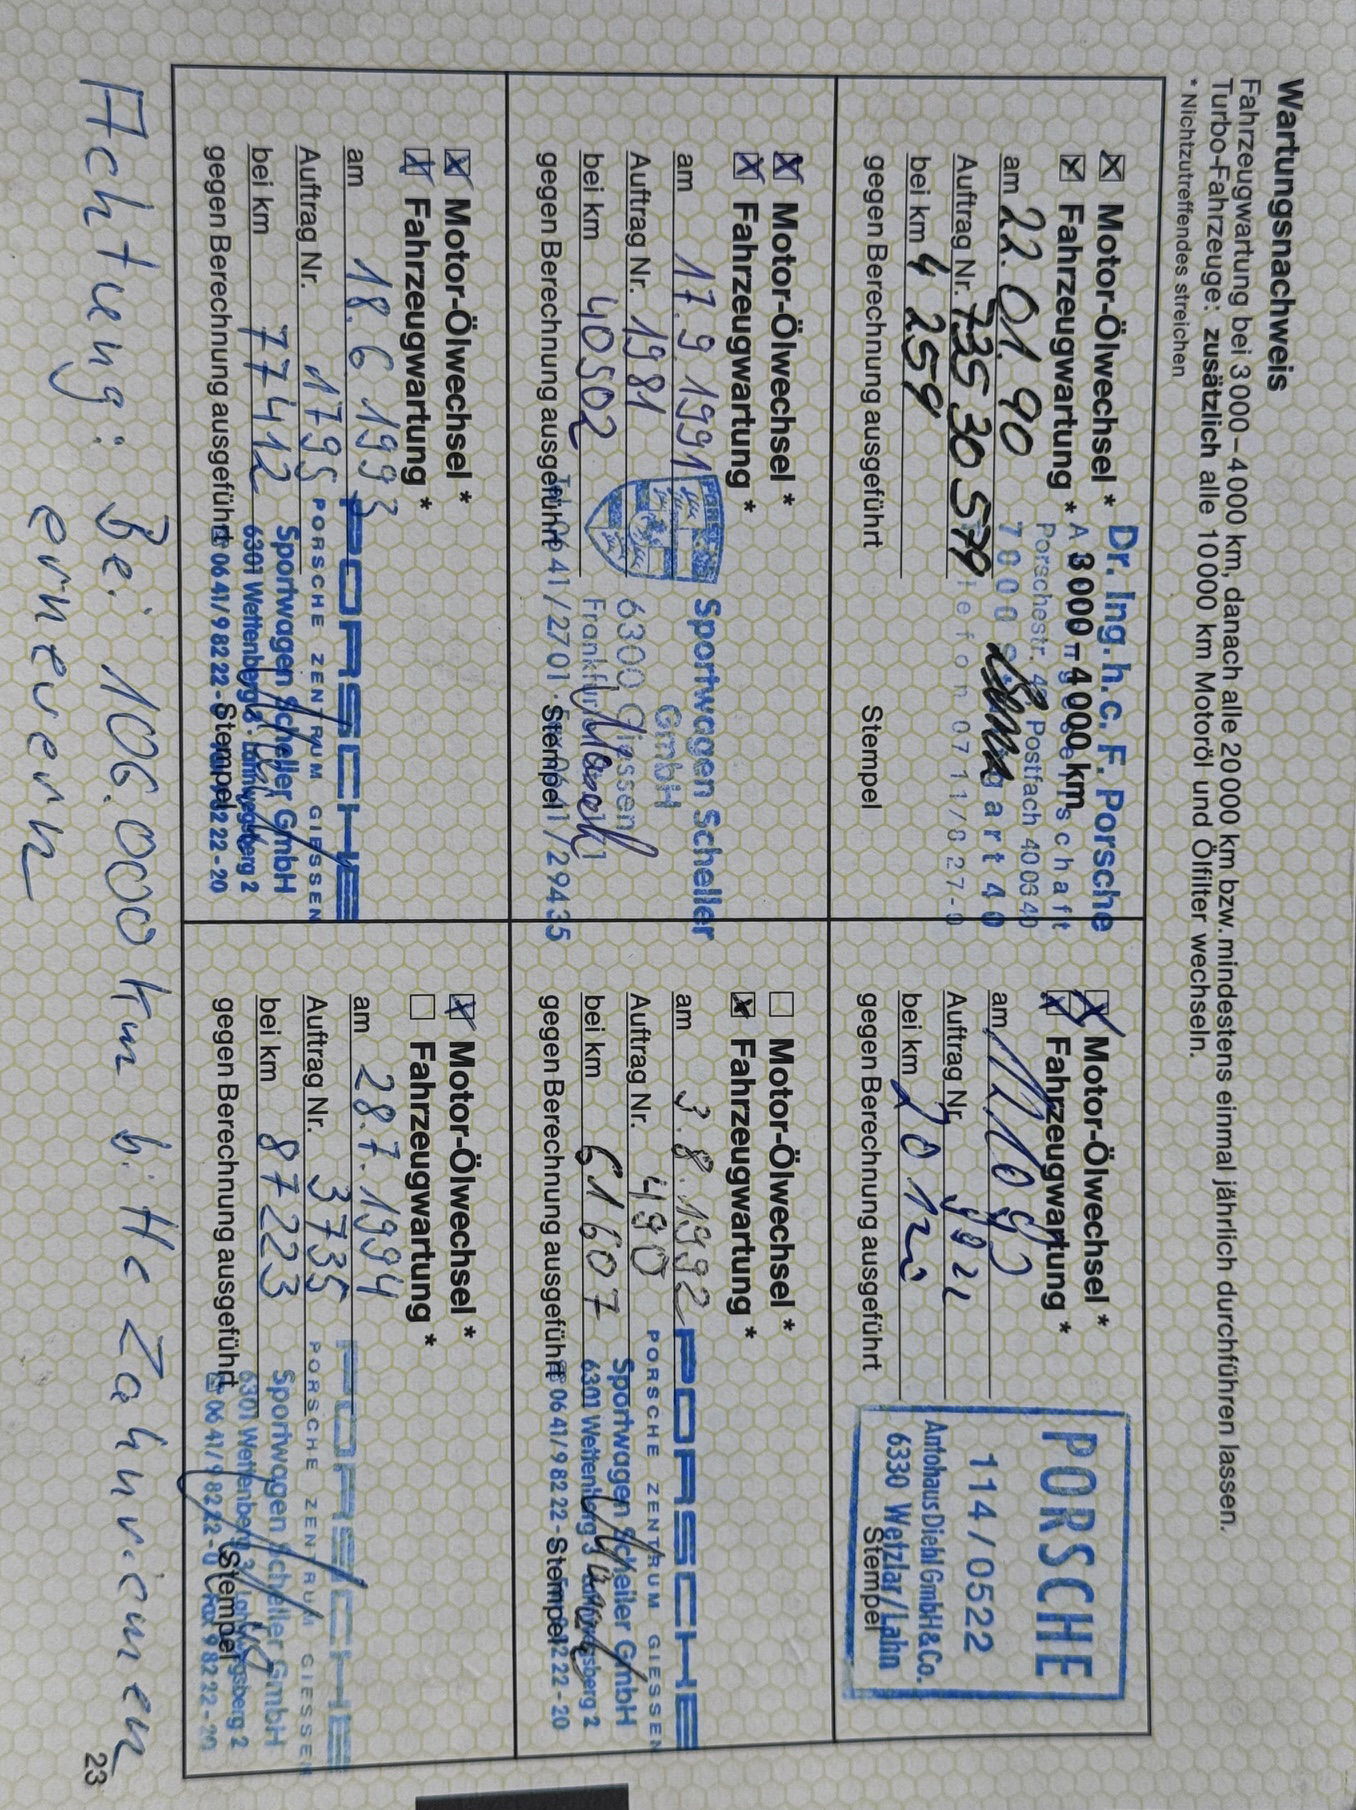 Wartungsnachweis
Fahrzeugwartung bei 3000–4000 km, danach alle 20000 km bzw. mindestens einmal jährlich durchführen lassen.
Turbo-Fahrzeuge: zusätzlich alle 10000 km Motoröl und Ölfilter wechseln.
* Nichtzutreffendes streichen
Motor-Ölwechsel *
Fahrzeugwartung * 3000–4000 km
am 22.01.90
Auftrag Nr. 73530579
bei km 4 259
gegen Berechnung ausgeführt
Stempel
Dr. Ing. h. c. F. Porsche
Porschestr. 42 Postfach 40 03 40
Motor-Ölwechsel *
Fahrzeugwartung *
am
Auftrag Nr.
bei km
gegen Berechnung ausgeführt
Stempel
PORSCHE
114/0522
Autohaus Diehl GmbH & Co.
6330 Wetzlar/Lahn
Motor-Ölwechsel *
Fahrzeugwartung *
am 17.9 1991
Auftrag Nr. 1981
bei km 40502
gegen Berechnung ausgeführt
Stempel
Sportwagen Scheller
GmbH
6300 Giessen
Motor-Ölwechsel *
Fahrzeugwartung *
am 3.8.1992
Auftrag Nr. 490
bei km 61607
gegen Berechnung ausgeführt
Stempel
PORSCHE
PORSCHE ZENTRUM GIESSEN
Sportwagen Scheller GmbH
6301 Wettenberg 3
06 41/9 82 22 - 0
Motor-Ölwechsel *
Fahrzeugwartung *
am 18.6 1993
Auftrag Nr. 1795
bei km 77412
gegen Berechnung ausgeführt
Stempel
PORSCHE
PORSCHE ZENTRUM GIESSEN
Sportwagen Scheller GmbH
6301 Wettenberg 3
06 41/9 82 22 - 0
Motor-Ölwechsel *
Fahrzeugwartung *
am 28.7.1994
Auftrag Nr. 3735
bei km 87223
gegen Berechnung ausgeführt
Stempel
PORSCHE
PORSCHE ZENTRUM GIESSEN
Sportwagen Scheller GmbH
6301 Wettenberg 3
06 41/9 82 22 - 0
Achtung: Bei 106.000 km bitte Zahnriemen
erneuern
23